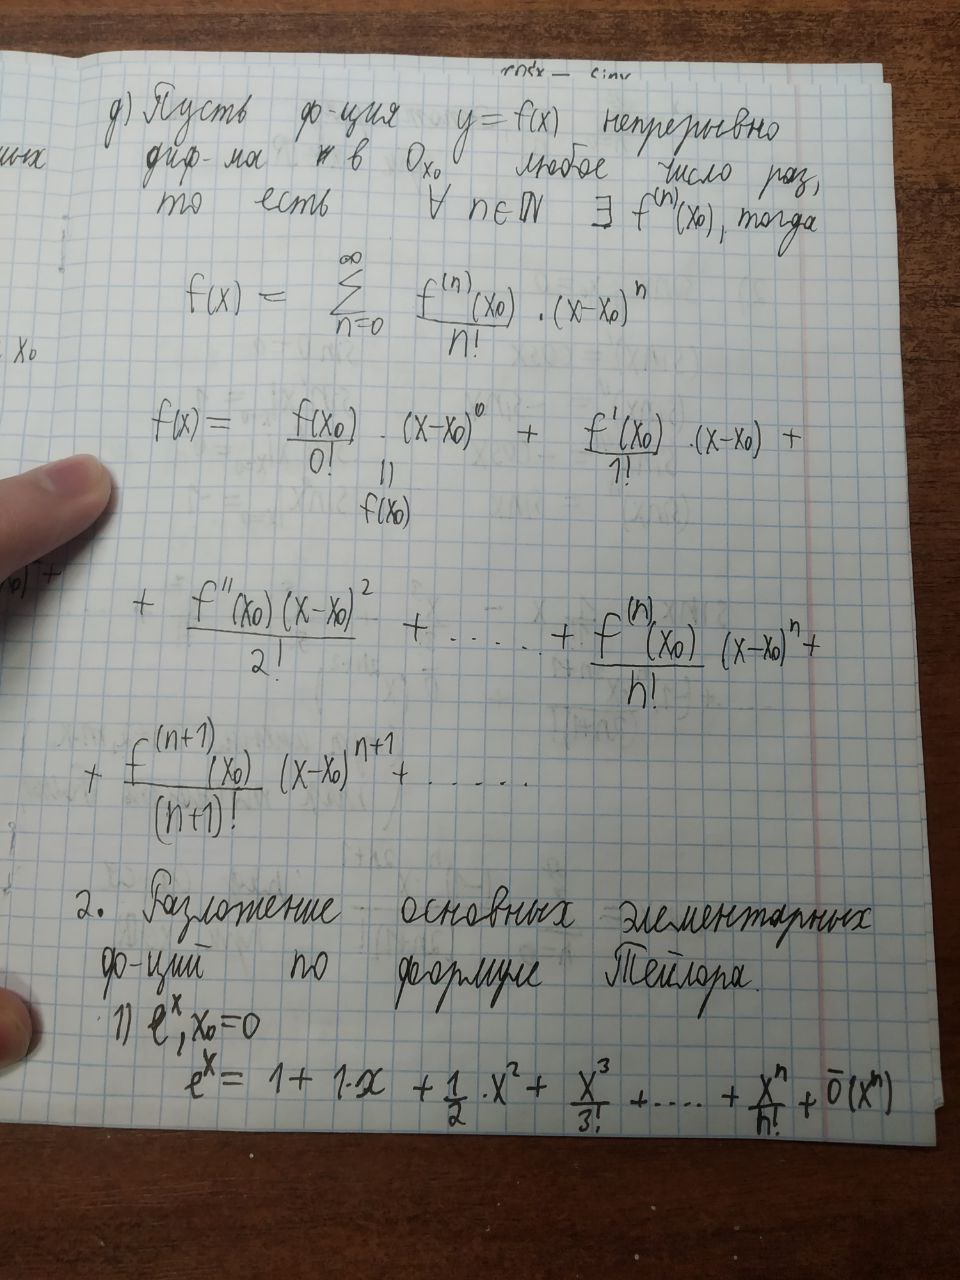 д) Пусть ф-ция y = f(x) непрерывно
ных
диф-ма в O_{x₀} любое число раз,
то есть ∀ n∈ℕ ∃ f⁽ⁿ⁾(x₀), тогда
f(x) = ∑_{n=0}^{∞} f⁽ⁿ⁾(x₀)/n! · (x-x₀)ⁿ
x₀
f(x) = f(x₀)/0! · (x-x₀)⁰ + f'(x₀)/1! · (x-x₀) +
||
f(x₀)
+ f''(x₀)(x-x₀)²/2! + ..... + f⁽ⁿ⁾(x₀)/n! (x-x₀)ⁿ +
+ f⁽ⁿ⁺¹⁾(x₀)/(n+1)! (x-x₀)ⁿ⁺¹ + ......
2. Разложение основных элементарных
ф-ций по формуле Тейлора.
1) eˣ, x₀=0
eˣ = 1 + 1·x + 1/2 · x² + x³/3! + .... + xⁿ/n! + ō(xⁿ)